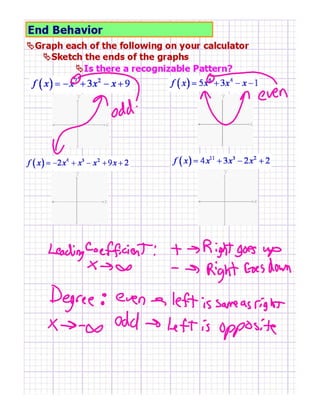 End Behavior
Graph each of the following on your calculator
Sketch the ends of the graphs
Is there a recognizable Pattern?
f(x) = -x +3x² - x + 9
f(x) = 5x +3x⁴ - x - 1
odd
even
f(x) = -2x⁴ + x³ - x² + 9x + 2
f(x) = 4x¹¹ + 3x³ - 2x² + 2
Leading Coefficient: + → Right goes up
x → ∞ - → Right Goes down
Degree: even → left is same as right
x → -∞ odd → Left is opposite